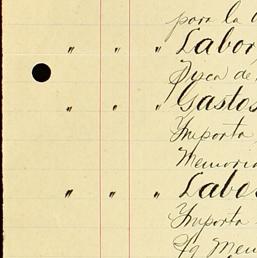 para la
" " " Labor
Finca de
" " " Gastos
Importa
Memoria
" " " Labor
Importa
Sg Mem